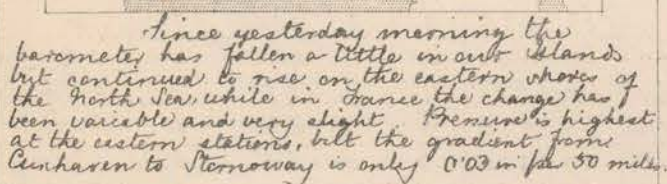 Since yesterday morning the
barometer has fallen a little in our islands
but continued to rise on the eastern shores of
the North Sea, while in France the change has
been variable and very slight. Pressure is highest
at the eastern stations, but the gradient from
Cuxhaven to Stornoway is only 0.03 in per 50 miles